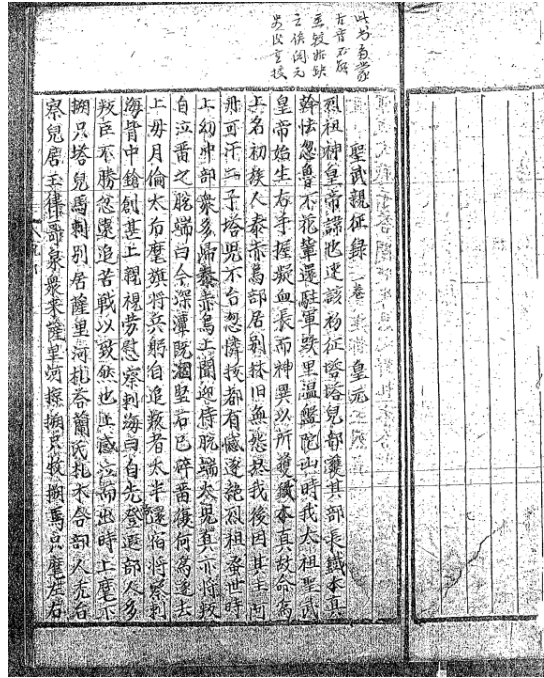 此書多蒙
古音不解
聖武親征録 一卷 皇元
烈祖神皇帝諱也速該初征塔塔兒部獲其部長鐵木真
斡怯忽魯不花輩還駐軍跌里温盤陀山時我太祖聖武
皇帝始生右手握凝血長而神異以所獲鐵木真故命爲
上名初族人泰赤烏部居别林旧無怨於我後因其主阿
丹可汗二子塔兒不台忽憐拔都有憾遂絶烈祖棄世時
上幼冲部衆多歸泰赤烏上聞近侍脱端火兒真亦將叛
自泣畱之脱端曰今深潭既涸堅石已碎畱復何爲遂去
上母月倫太后麾旗將兵躬自追叛者太半還宿將察剌
海背中鎗創甚上親視勞慰察剌海曰自先登遐部人多
叛臣不勝忿遠追苦戰以致然也上感泣而出時上麾下
搠只塔兒馬剌别居薩里河札荅蘭氏札木合部人禿台
察兒居玉律哥泉衆来薩里河掠搠只牧搠馬只麾左右